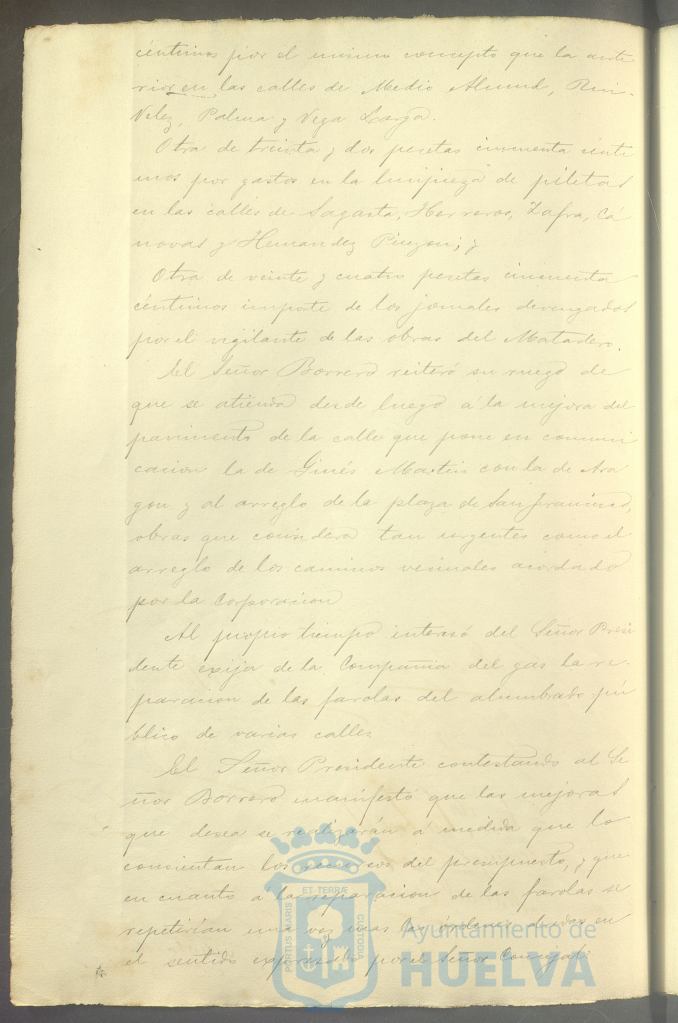 céntimos por el mismo concepto que la ante
rior en las calles de Medio Almud, Rui-
Velez, Palma y Vega Larga.
Otra de treinta y dos pesetas cincuenta cénti
mos por gastos en la limpieza de piletas
en las calles de Sagasta, Herreros, Zafra, Cá
novas y Hernandez Pinzon; y
Otra de veinte y cuatro pesetas cincuenta
céntimos importe de los jornales devengados
por el vigilante de las obras del Matadero.
El Señor Borrero reiteró su ruego de
que se atienda desde luego á la mejora del
pavimento de la calle que pone en comuni
cacion la de Ginés Martin con la de Ara
gon y al arreglo de la plaza de San Francisco,
obras que considera tan urgentes como el
arreglo de los caminos vecinales acordado
por la Corporacion
Al propio tiempo interesó del Señor Presi
dente exija de la Compañia del gas la re-
paracion de las farolas del alumbrado pú
blico de varias calles
El Señor Presidente contestando al Se
ñor Borrero manifestó que las mejoras
que desea se realizarán á medida que lo
consientan los recursos del presupuesto, y que
en cuanto á la reparacion de las farolas se
repetirían una vez mas las órdenes dadas en
el sentido expresado por el Señor Concejal.
PORTUS MARIS ET TERRÆ CUSTODIA
Ayuntamiento de
HUELVA